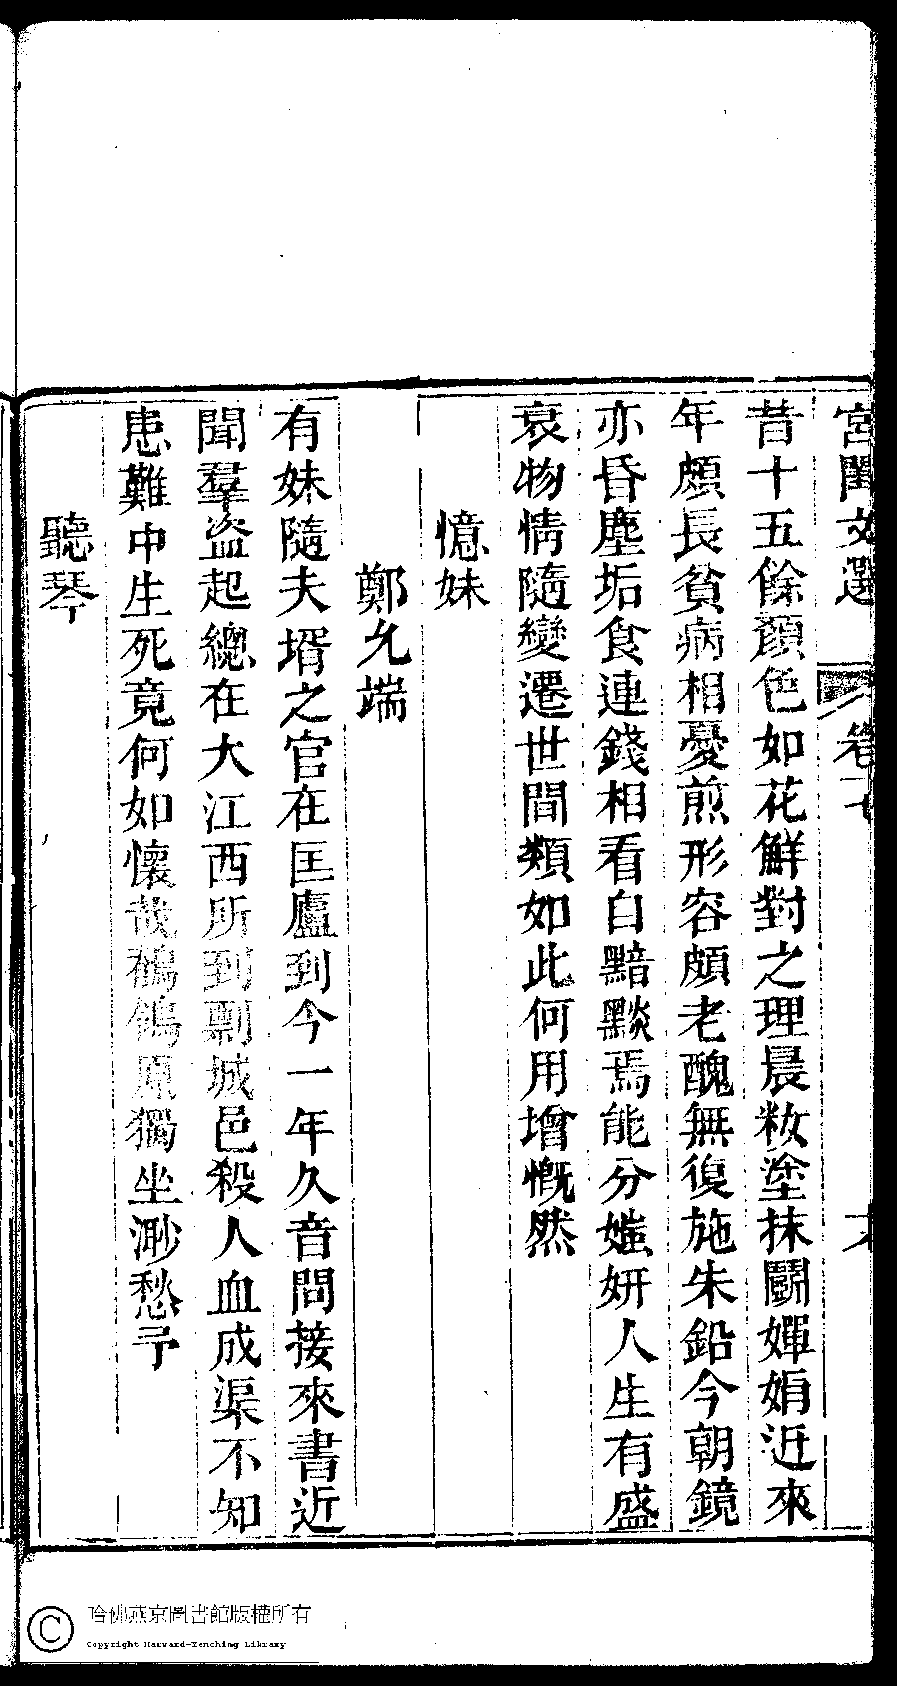 宮閨文選 卷十 大
昔十五餘顏色如花鮮對之理晨粧塗抹鬭嬋娟近來
年頗長貧病相憂煎形容頗老醜無復施朱鉛今朝鏡
亦昏塵垢食連錢相看白黯黮焉能分媸妍人生有盛
衰物情隨變遷世間類如此何用增慨然
憶妹
鄭允端
有妹隨夫壻之官在匡廬到今一年久音問接來書近
聞羣盜起總在大江西所到剽城邑殺人血成渠不知
患難中生死竟何如懷哉鶺鴒原獨坐渺愁予
聽琴
哈佛燕京圖書館版權所有
Copyright Harvard-Yenching Library